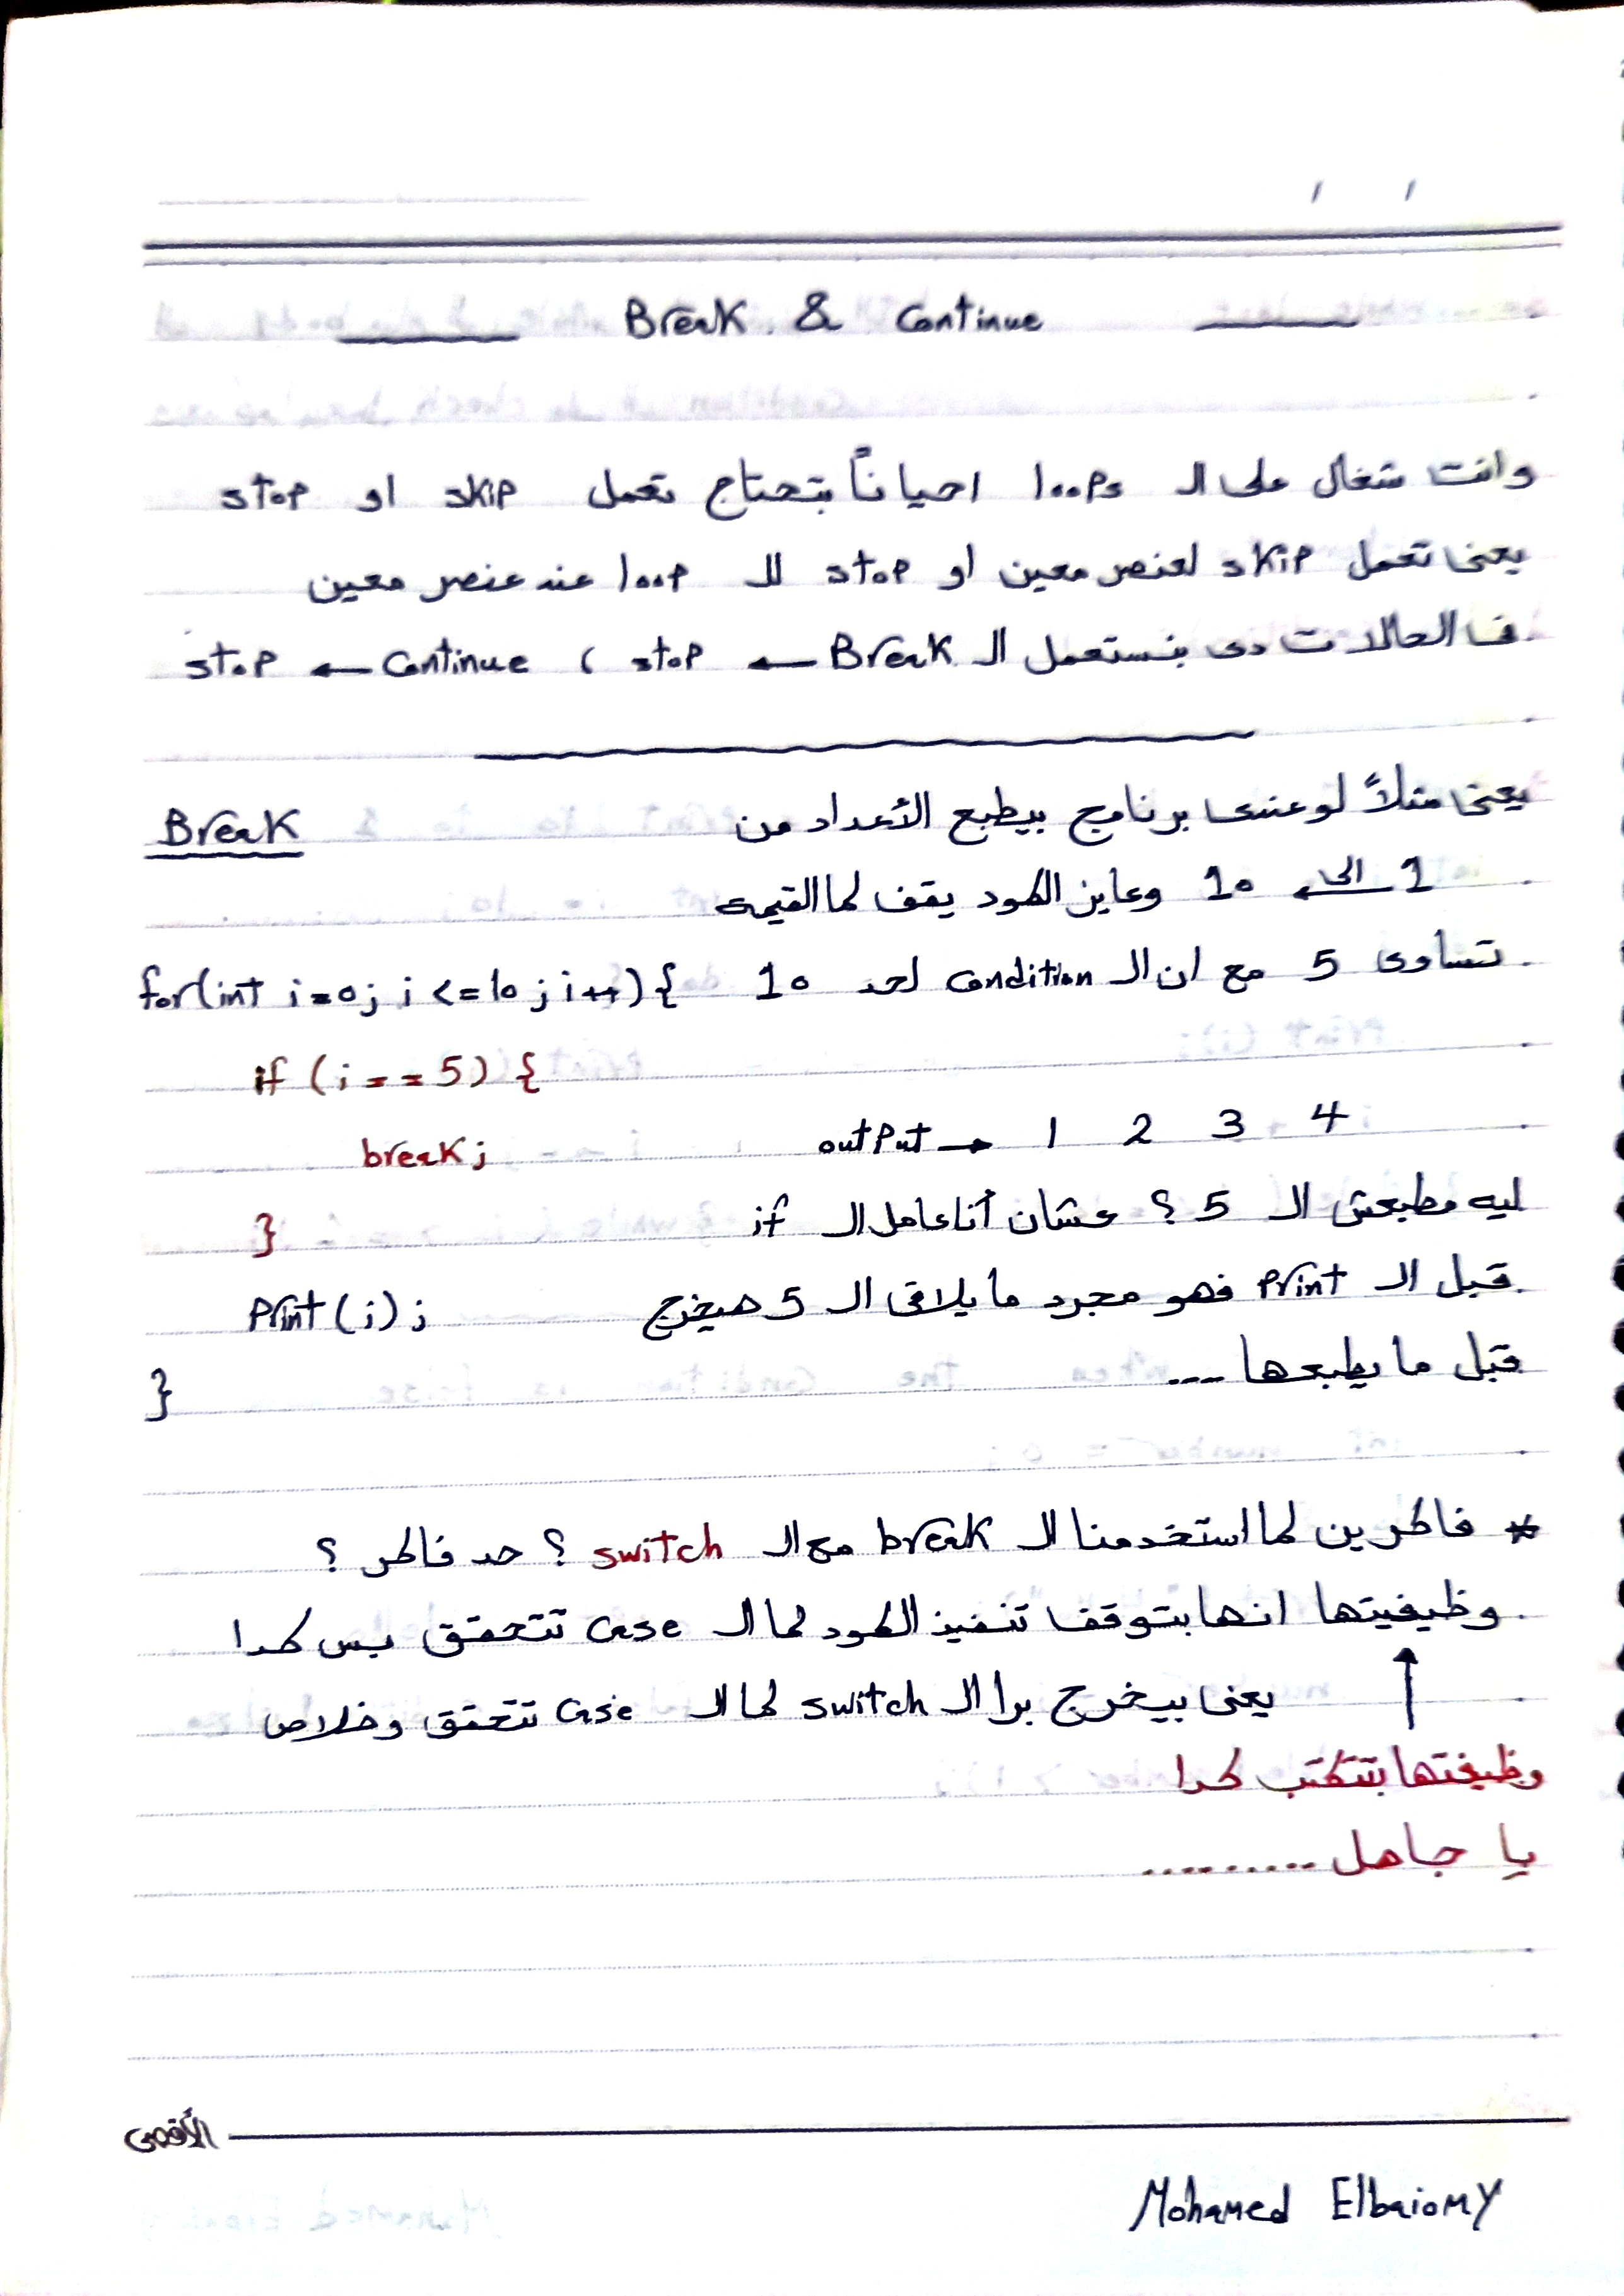 Break & Continue
وانت شغال على ال loops احياناً بتحتاج تعمل skip او stop
يعنى تعمل skip لعنصر معين او stop لل loop عند عنصر معين
ف الحالات دى بنستعمل ال Break ← stop ، Continue ← stop
Break
يعنى مثلاً لو عندى برنامج بيطبع الأعداد من
1 الى 10 وعايز الكود يقف لما القيمه
تساوى 5 مع ان ال condition لحد 10
for(int i=0; i <=10; i++){
if (i == 5) {
break;
output → 1 2 3 4
}
ليه مطبعش ال 5 ؟ عشان أنا عامل ال if
قبل ال print فهو مجرد ما يلاقى ال 5 هيخرج
print(i);
قبل ما يطبعها ...
}
* فاكرين لما استخدمنا ال break مع ال switch ؟ حد فاكر ؟
وظيفيتها انها بتوقف تنفيذ الكود لما ال case تتحقق بس كدا
يعنى بيخرج برا ال switch لما ال case تتحقق وخلاص
وظيفتها بتتكتب كدا
يا جاهل .........
الأقصى
Mohamed Elbaiomy